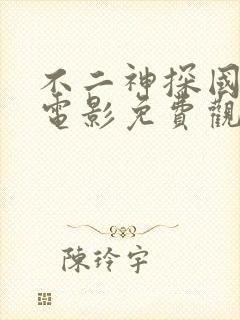 不二神探國
電影免費觀
陳玲宇